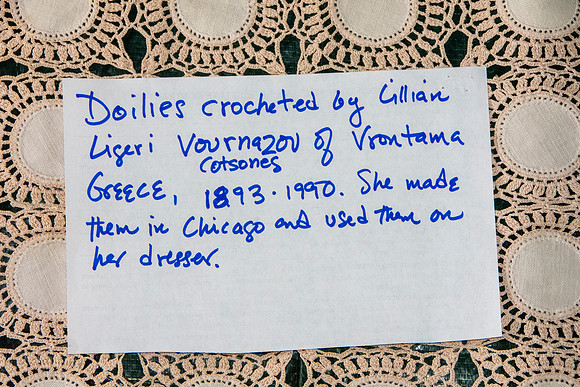 Doilies crocheted by Lillian
Ligeri Vournazou of Vrontama
Cotsones
GREECE, 1893 · 1990. She made
them in Chicago and used them on
her dresser.